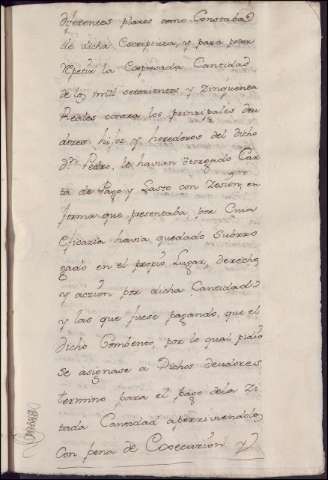 diferentes plazos como Constaba
de dicha Escriptura, y para poder
repetir la Expresada Cantidad
de los mil setecientos y Zinquenta
Reales contra los principales deu
dores hijos y herederos del dicho
Dn. Pedro, le havian otorgado Car
ta de Pago y Lasto con Zesion en
forma que presentaba, por Cuia
eficazia havia quedado Subrro
gado en el propio Lugar, derecho
y accion por dicha Cantidad
y las que fuese pagando, que el
dicho por lo qual pidio
se asignase a Dichos deudores
termino para el pago de la Zi
tada Cantidad aperziviendolos
Con pena de Execuzion y